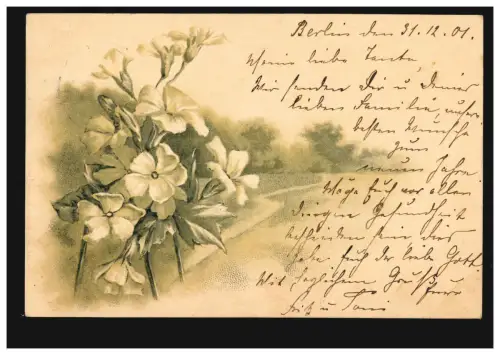 Berlin den 31.12.01.
Meine liebe Tante
Wir senden Dir u Deiner
lieben Familie, unsre
besten Wünsche
zum
neuen Jahre
Möge Euch vor allen
Dingen Gesundheit
beschieden sein die
gebe Euch der liebe Gott.
Mit herzlichem Gruß Eure
Fritz u Toni